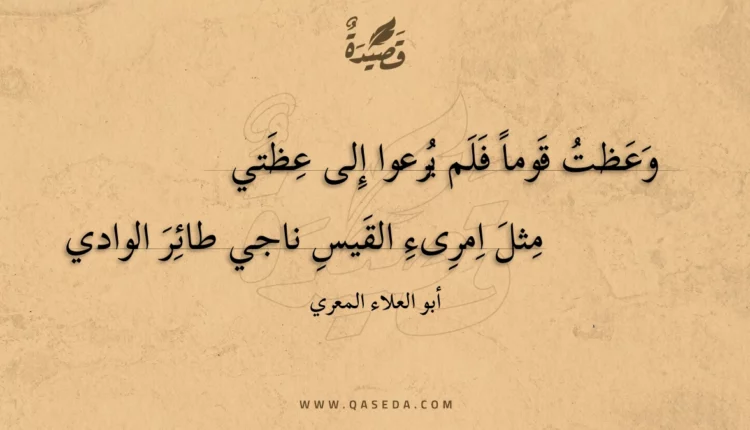 قَصِيْدَةٌ
وَعَظتُ قَوماً فَلَم يُرعوا إِلى عِظَتي
مِثلَ اِمرِىءِ القَيسِ ناجي طائِرَ الوادي
أبو العلاء المعري
WWW.QASEDA.COM